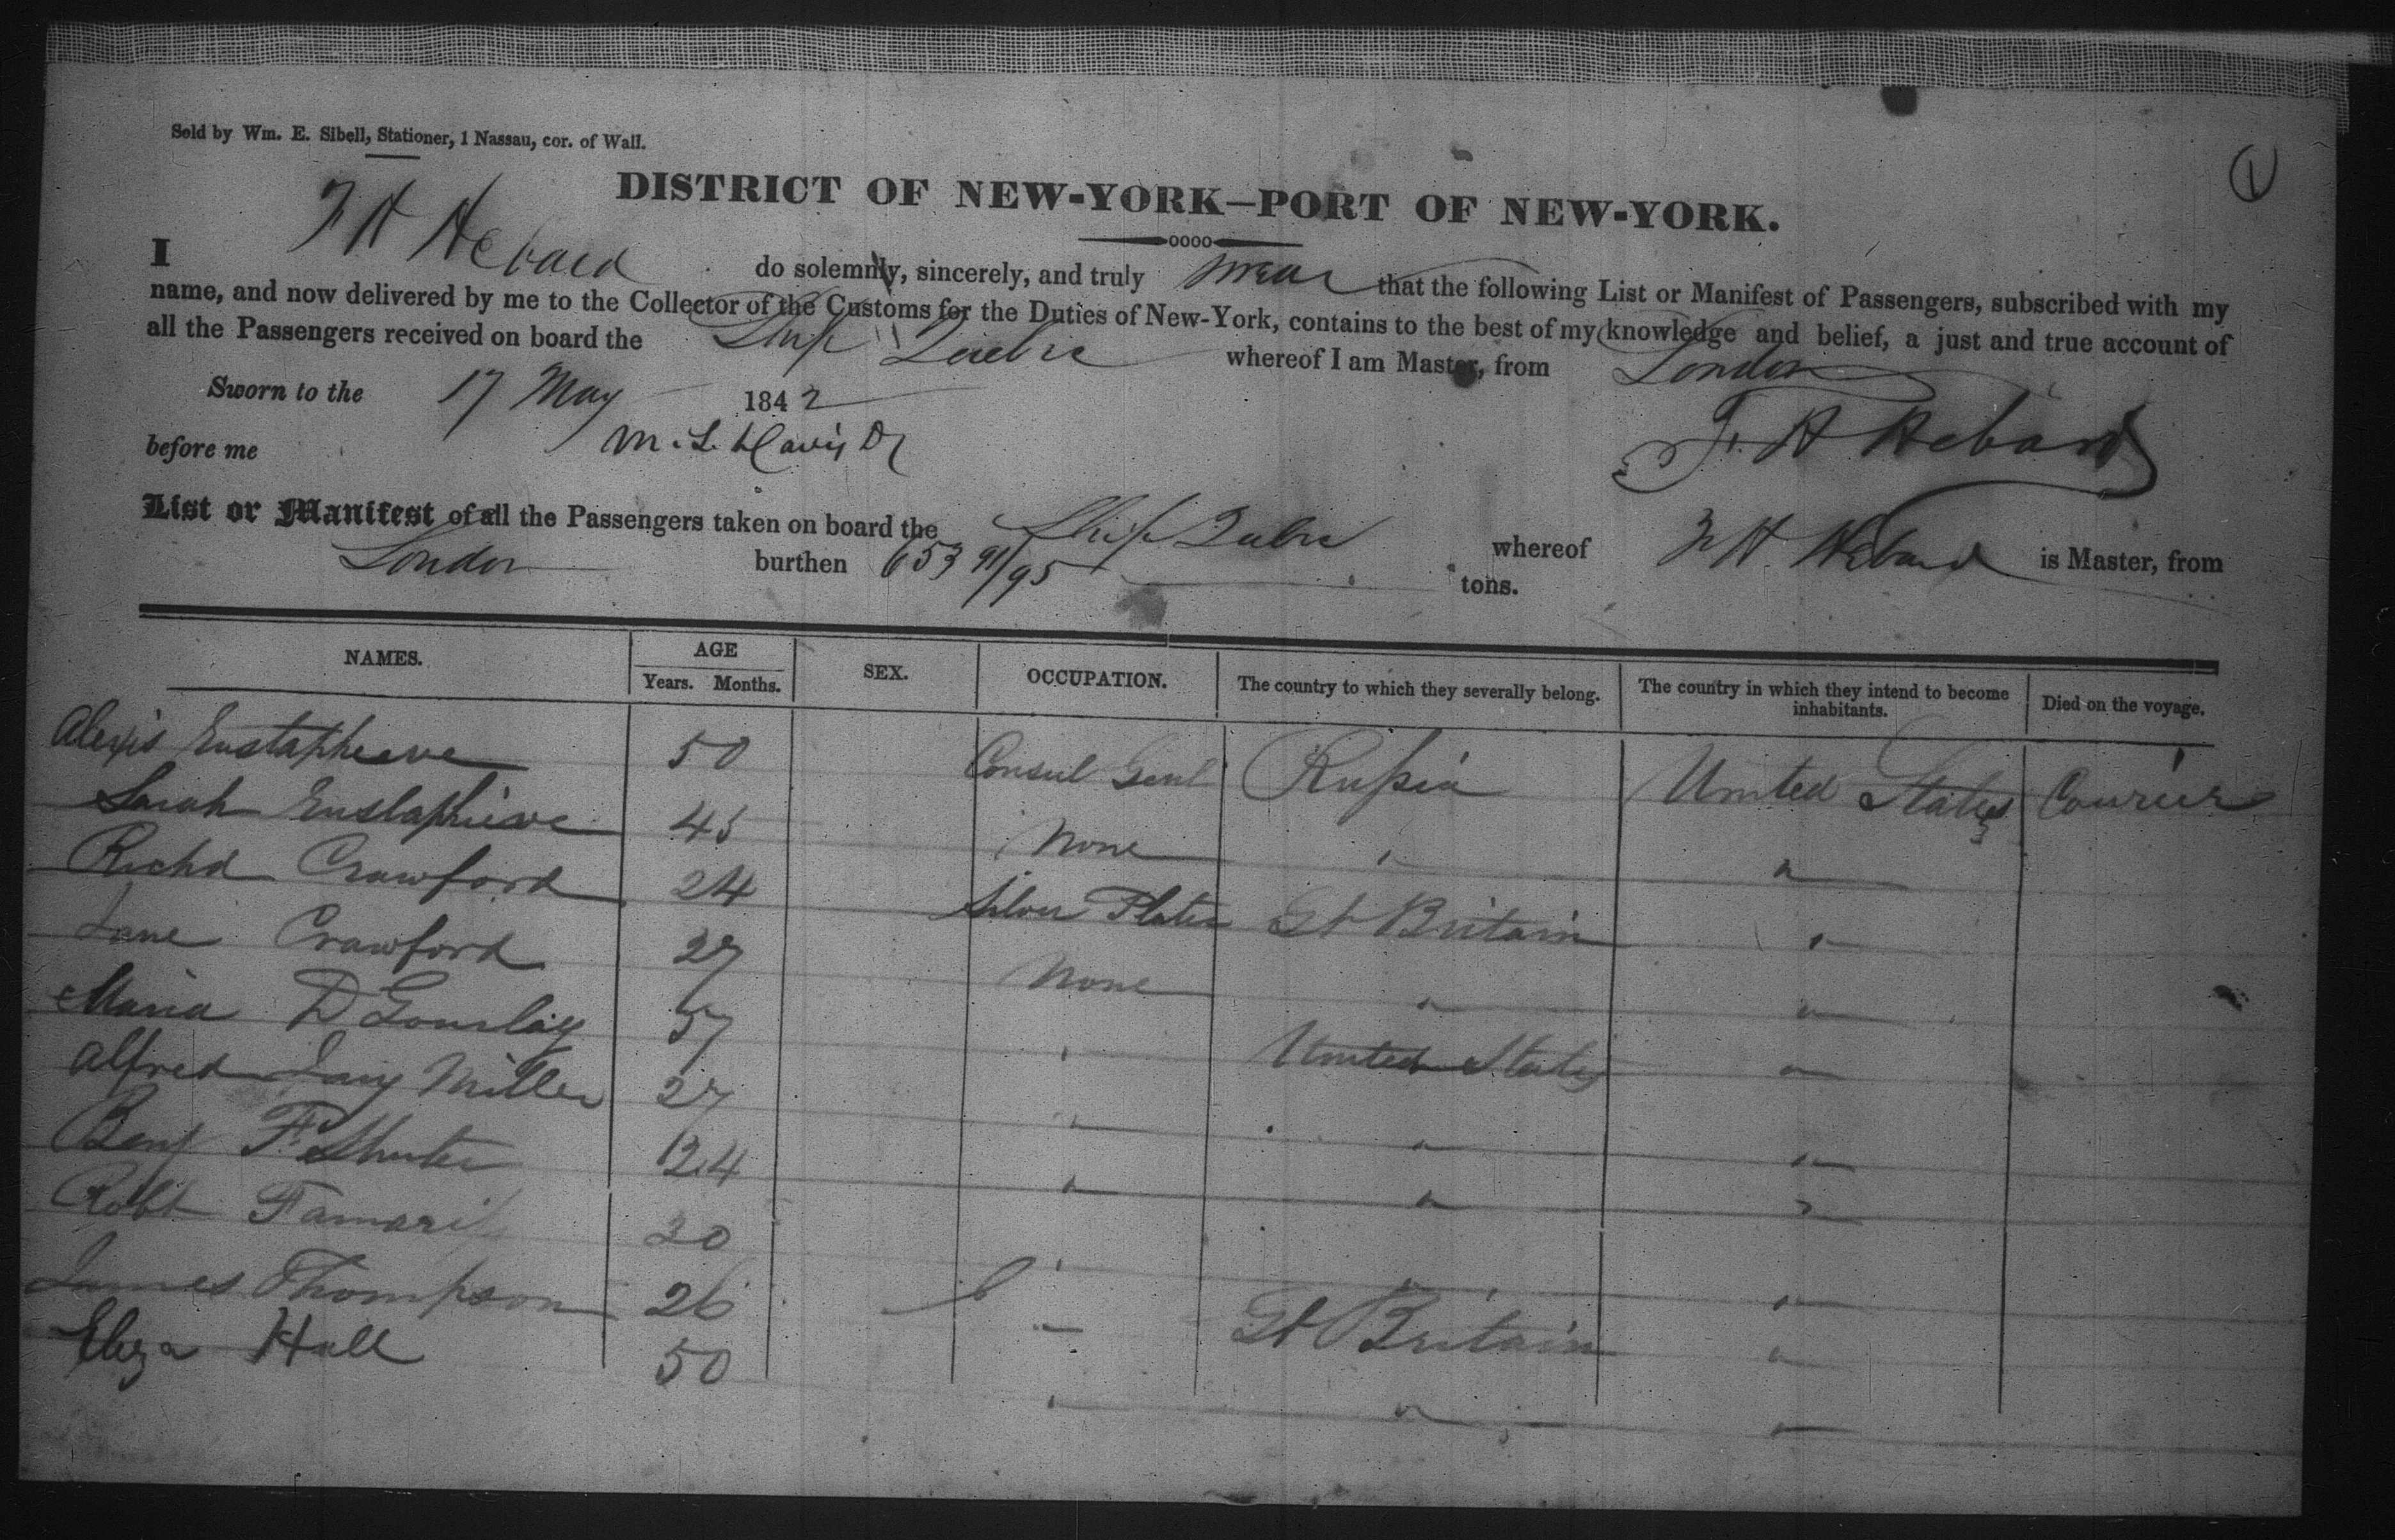 Sold by Wm. E. Sibell, Stationer, 1 Nassau, cor. of Wall.
1
DISTRICT OF NEW-YORK—PORT OF NEW-YORK.
I F H Hebard do solemnly, sincerely, and truly swear that the following List or Manifest of Passengers, subscribed with my
name, and now delivered by me to the Collector of the Customs for the Duties of New-York, contains to the best of my knowledge and belief, a just and true account of
all the Passengers received on board the Ship Quebec whereof I am Master, from London
Sworn to the 17 May 1842
before me M. L. Davis F. H Hebard
List or Manifest of all the Passengers taken on board the Ship Quebec whereof F H Hebard is Master, from
London burthen 653 91/95 tons.
NAMES. AGE SEX. OCCUPATION. The country to which they severally belong. The country in which they intend to become inhabitants. Died on the voyage.
Years. Months.
Alexis Eustapheeve 50 Consul Genl Russia United States Courier
Sarah Eustaphieve 45 None " "
Richd Crawford 24 Silver Plater Gt Britain "
Jane Crawford 27 None " "
Maria D Gourlay 57 " United States "
Alfred Jay Miller 27 " " "
Benj F Shuter 24 " " "
Robt 30 " " "
James Thompson 26 " Gt Britain "
Eliza Hall 50 " " "